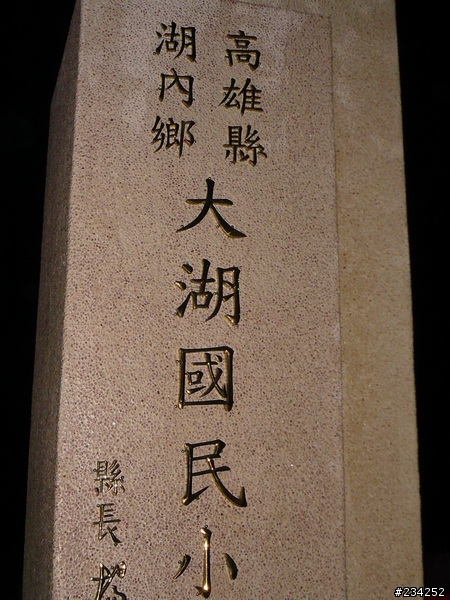 高雄縣
湖內鄉
大湖國民小
縣長楊
#234252